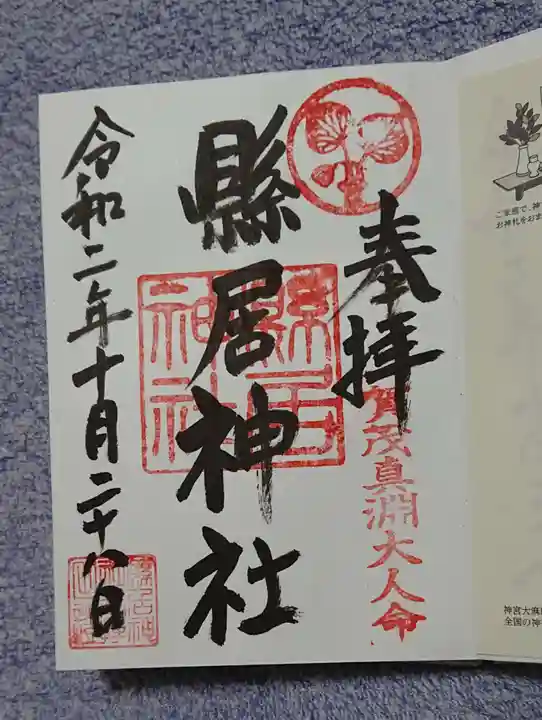 奉拝
賀茂真淵大人命
縣居神社
縣居神社
令和二年十月二十八日
ご家庭で、神
お神札をおま
神宮大麻
全国の神